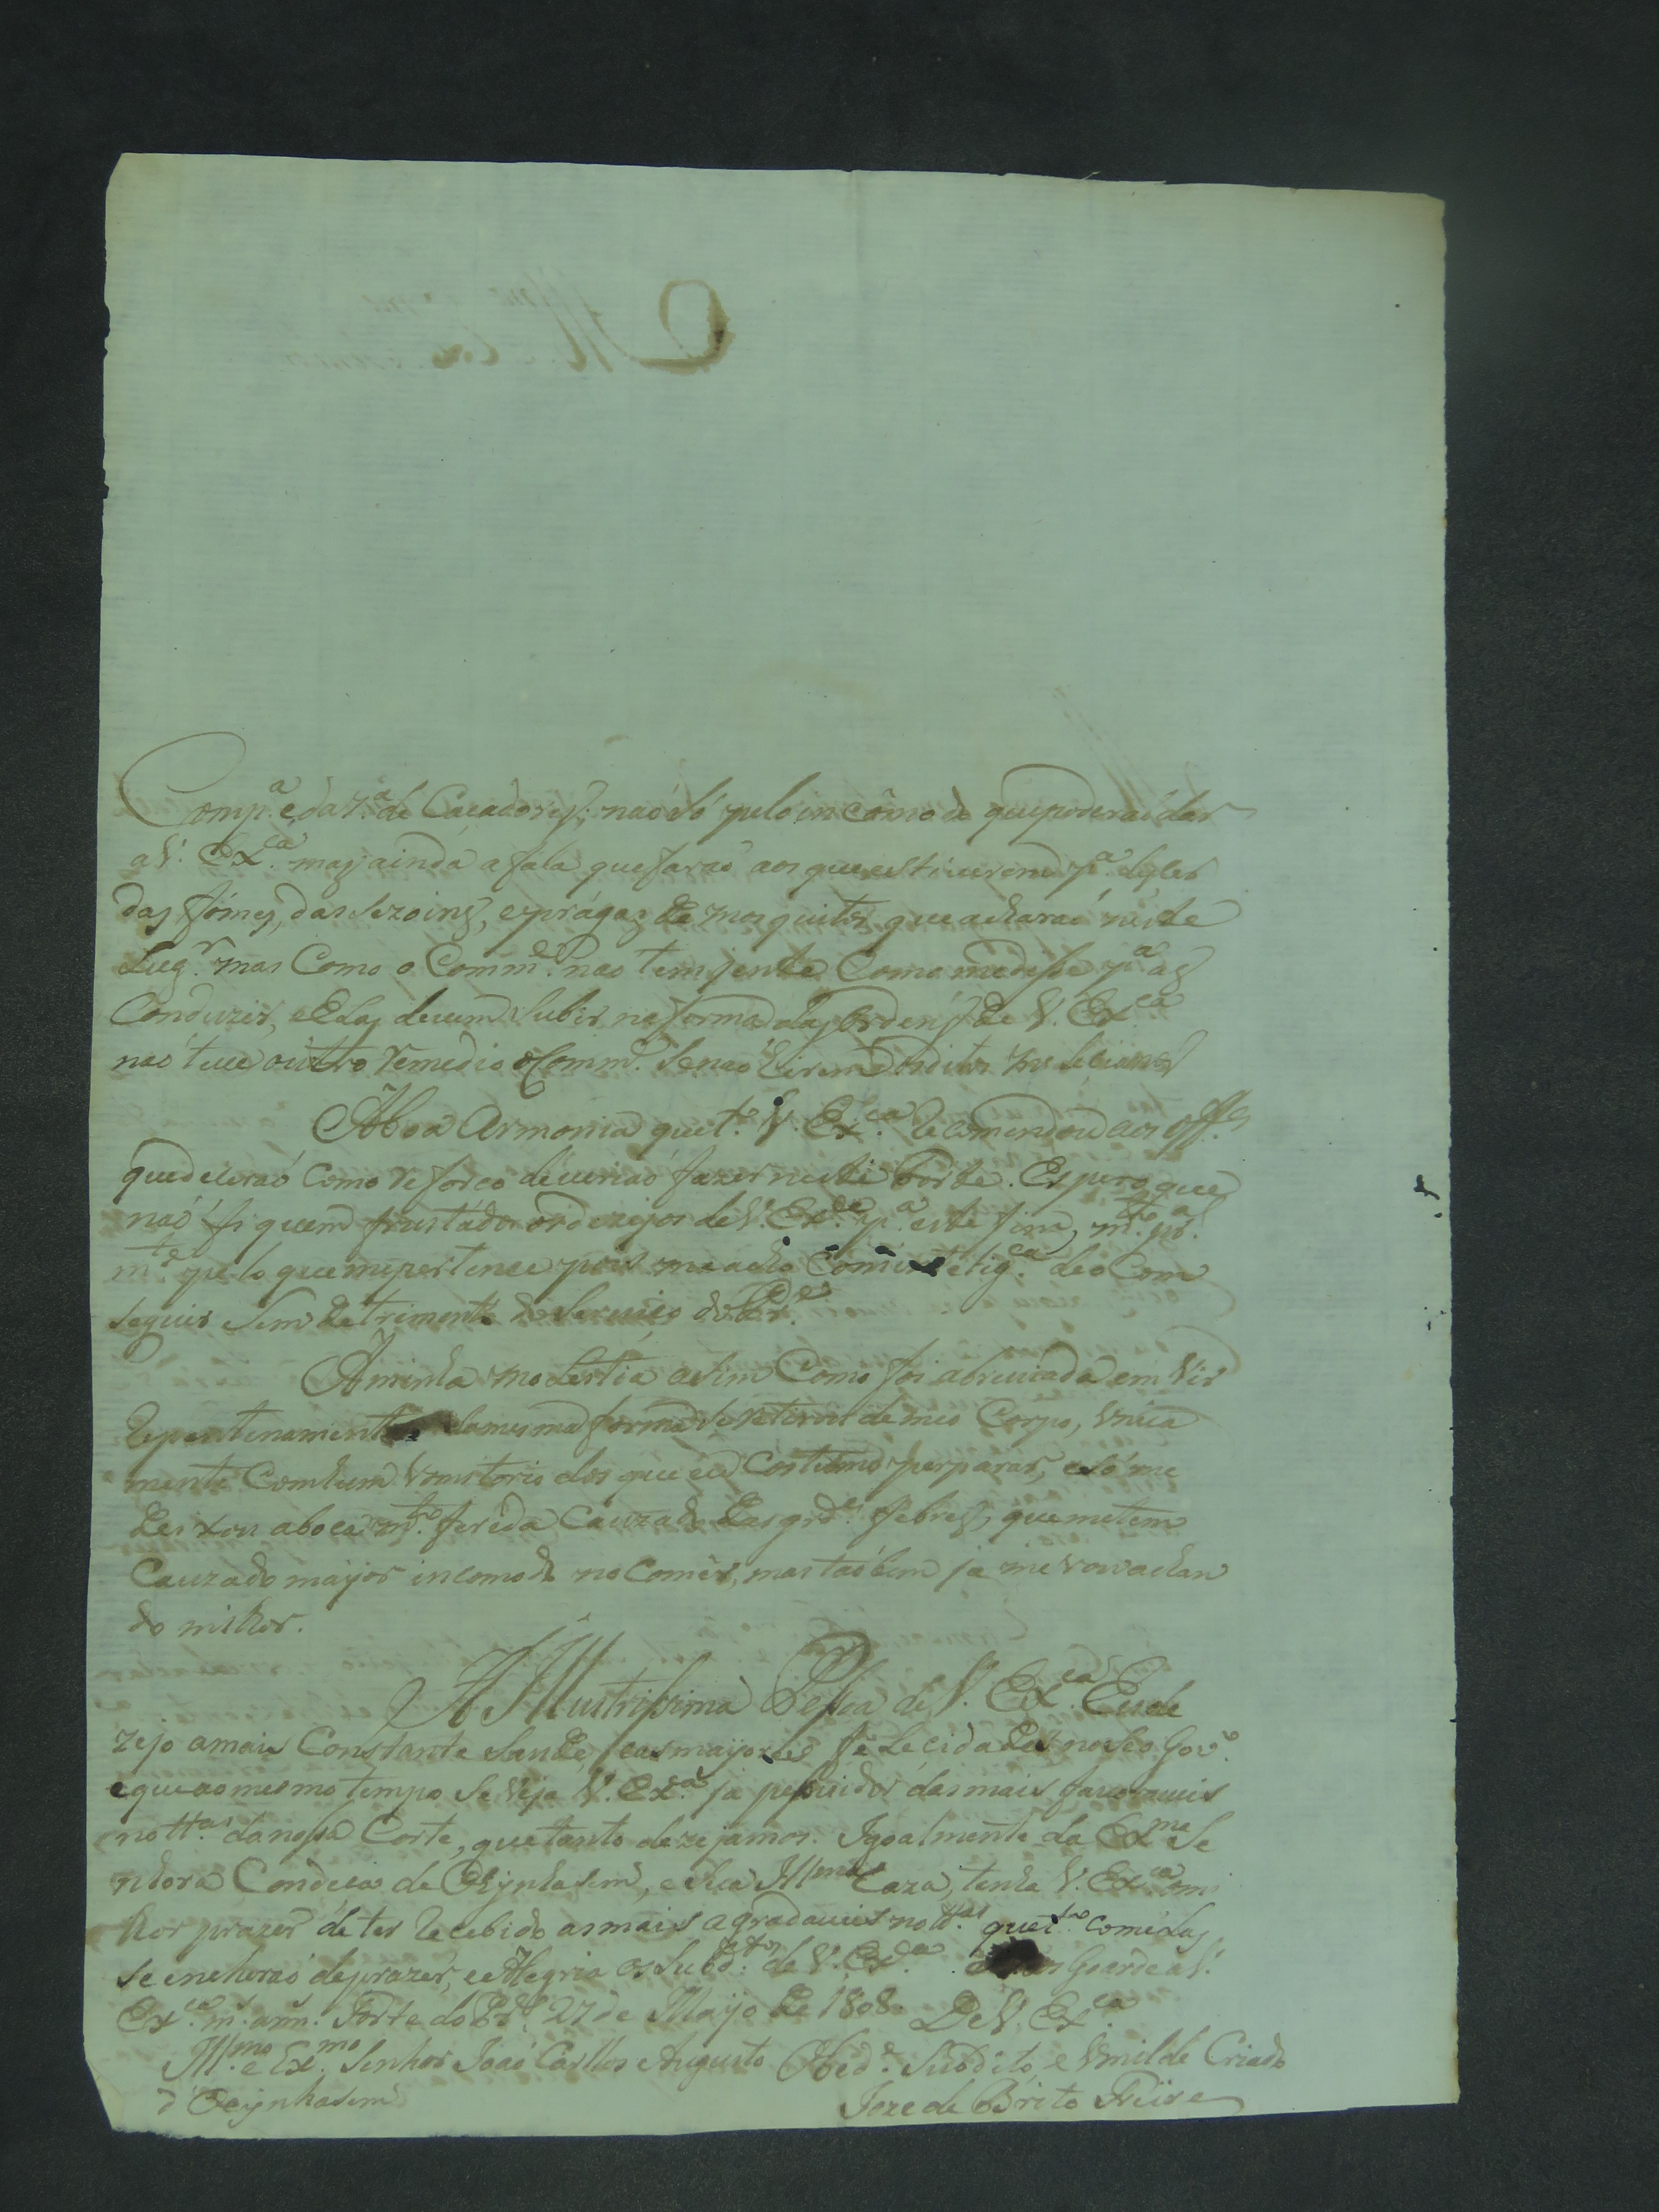 Comp.ª e da 7.ª de Cacadores; naó só pelo in cômodo que poderaó dar
a V. Ex.ca mas ainda a fala que faraó aos que estiverem p.ª
das fómes, das sezoins, e prágas de mosquitos que acharaó neste
Lug.r mas Como o Comm.e nao tem jente Como medisse p.ª as
Conduzir, e Elas devem Subir na forma das Ordens de V. Ex.ca
nao teve outro remedio o Comm.e Senaó
A boa Armonia que t.o V. Ex.ca Recomendou aos Off.es
que deceraó Como reforco deveriaó fazer neste Forte. Espero que
naó fiquem frustádos os dezejos de V. Ex.ca p.ª este fim, m.to
m.te pelo que me pertence pois me acho de o Com
seguir Sem detrimento do Servico do
A minha molestia asim Como foi abreviada em Vir
Repentinamente da mesma forma Se retirou de meo Corpo, Unica
mente Com hum Vomitorio dos que eu Costumo perparar, e só me
deixou a boca m.to ferida Cauzado das grd.es febres, que me tem
Cauzado mayor incomodo no Comer, mas taóbem ja me vou achan
do milhor.
A Illustrissima Pessoa de V. Ex.ca Eu de
zejo a mais Constante Saude, e as mayores Felecidades no Seo Gov.o
e que ao mesmo tempo Se Veja V. Ex.ca ja pessuidor das mais favoraveis
nott.as da nossa Corte, que tanto dezejamos. Igoalmente da Ex.ma Se
nhora Condeca de Oeynhasem, e Sua Ill.ma Caza, tenha V. Ex.ca o mi
lhor prazer de ter Recebido as mais agradaveis nott.as que t.o com elas
se encheraó de prazer, e Alegria os Subd.tos de V. Ex.ca Goarde a V.
Ex.ca m.s ann.s Forte do 27 de Mayo de 1808. De V. Ex.ca
Ill.mo e Ex.mo Senhor Joaó Carllos Augusto Obed.e Subdito, e Umilde Criado
d'Oeijnhasem Joze de Brito Freire